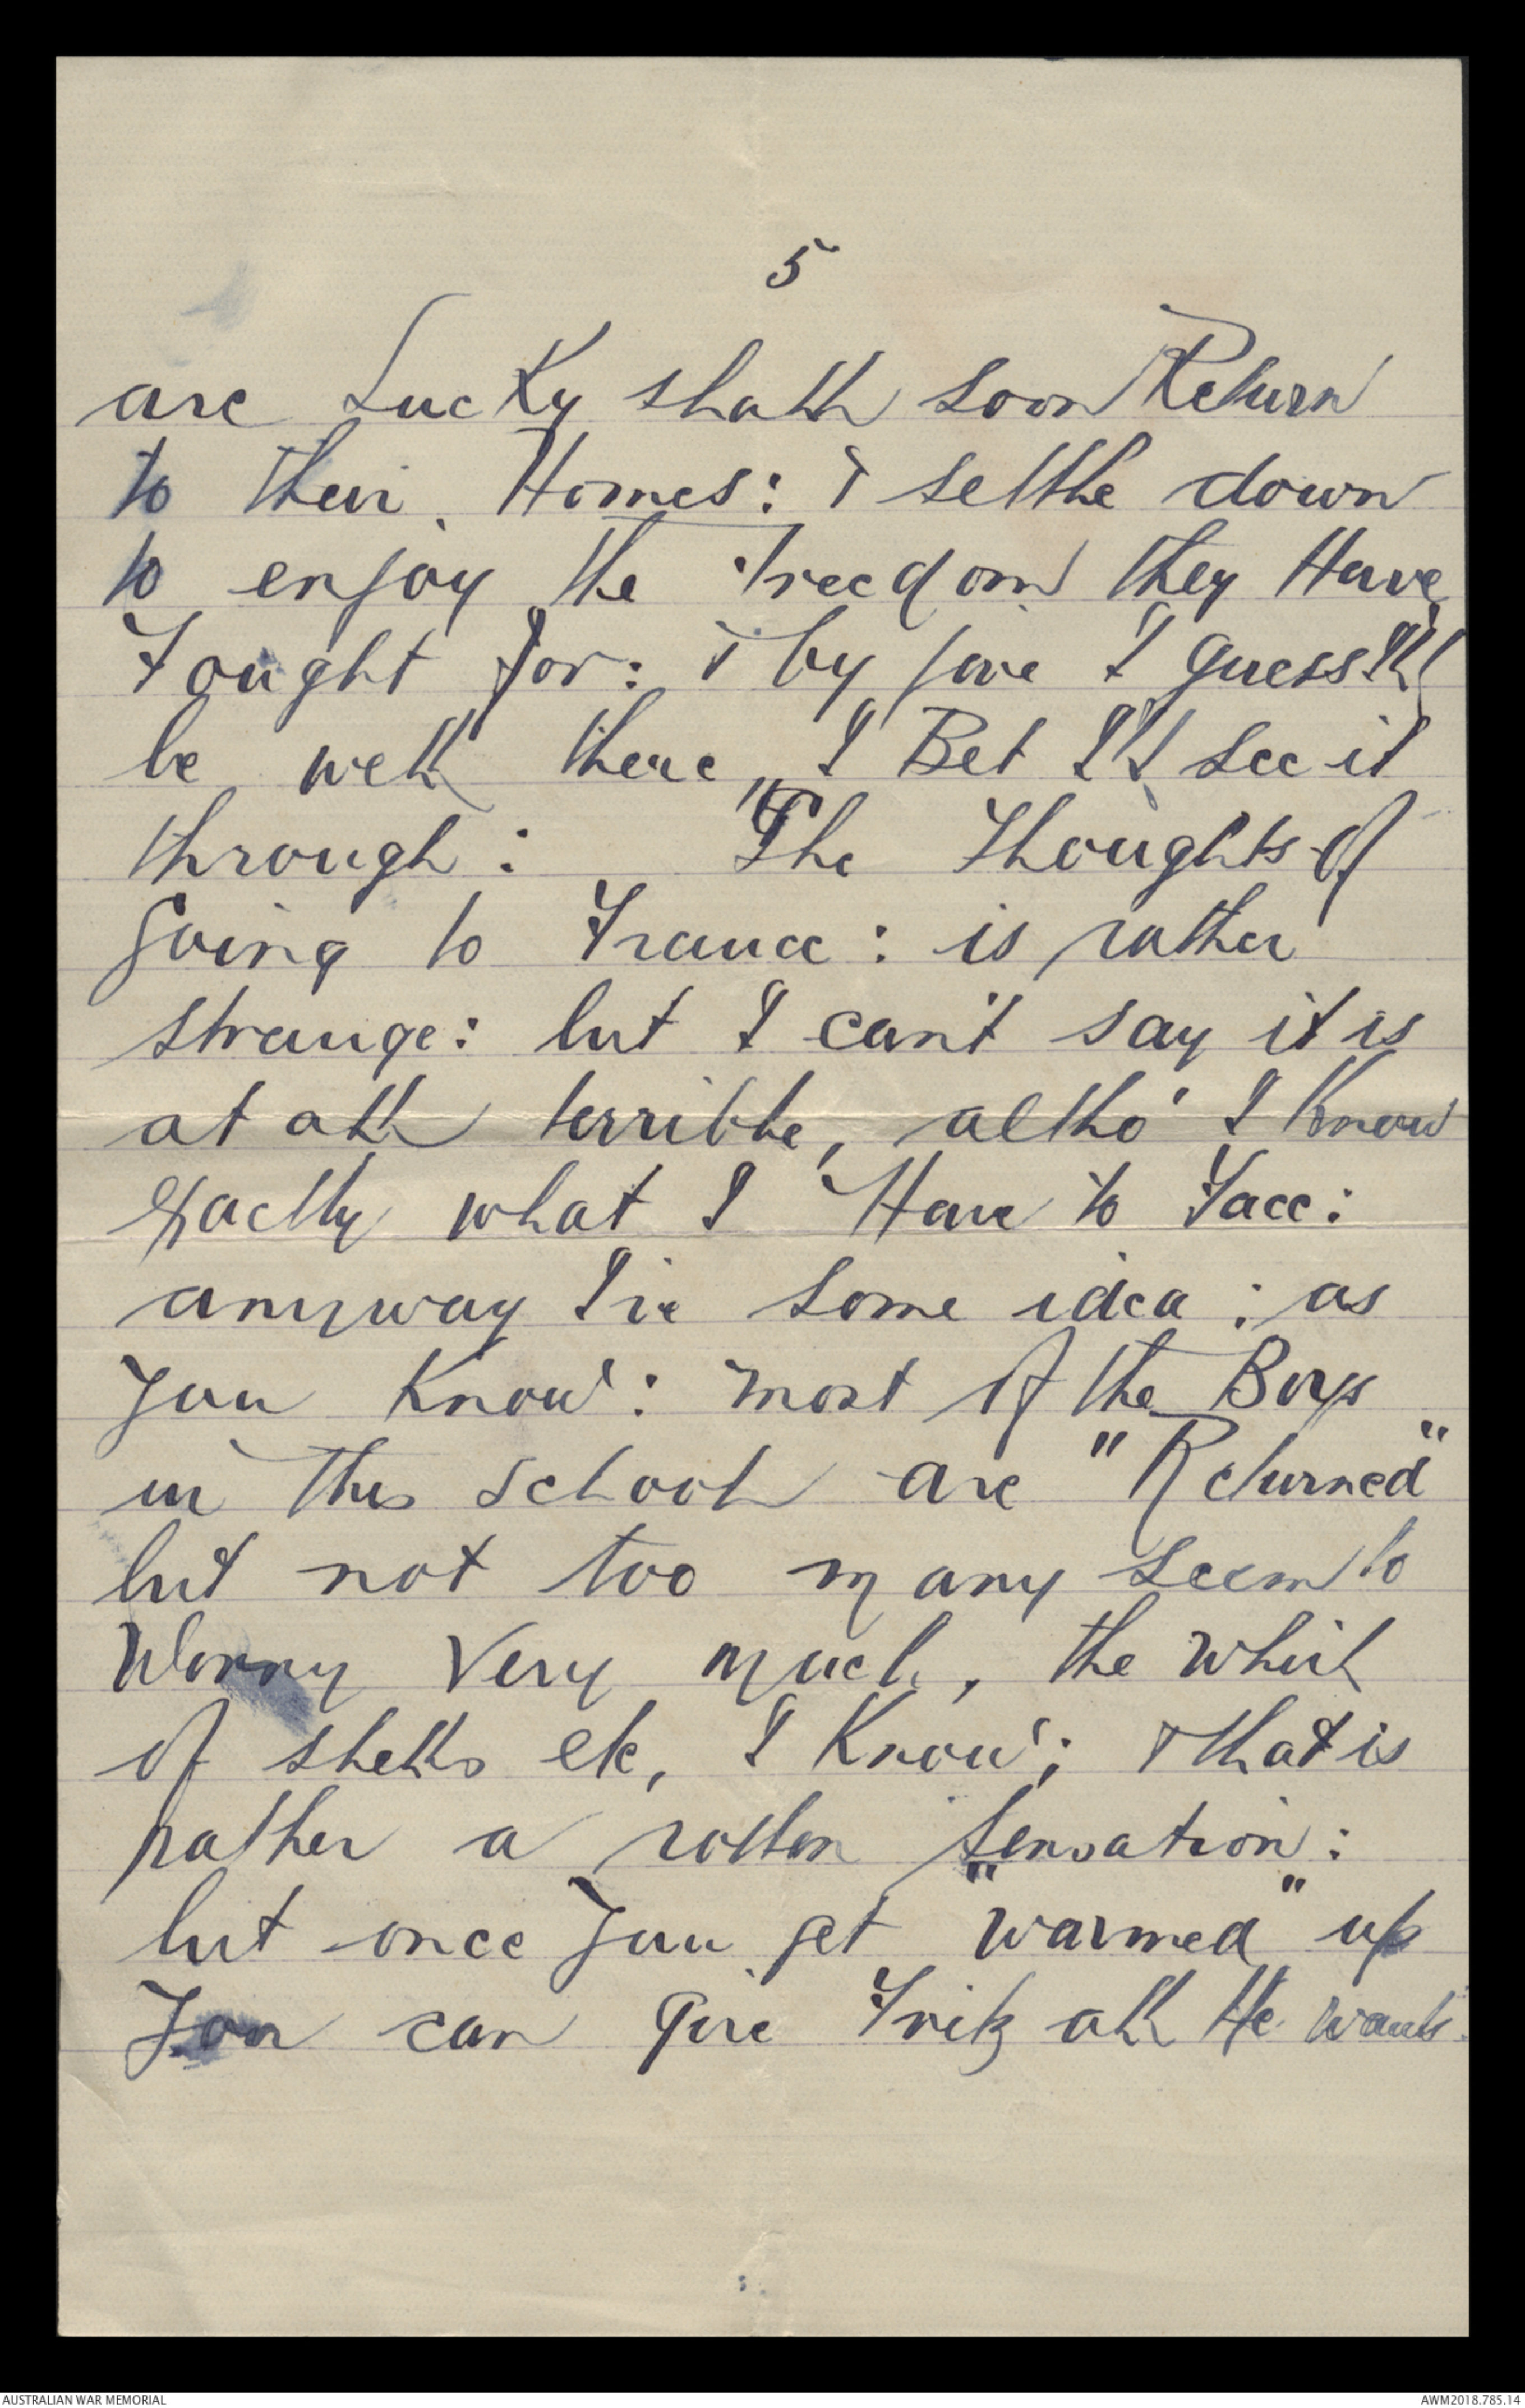 5
are Lucky shall soon Return
to their Homes: & settle down
to enjoy the freedom they Have
Fought for: & by jove I guess I'll
be well there, I Bet I'll see it
through: "The Thoughts of
going to France: is rather
strange: but I can't say it is
at all terrible, altho' I Know
exactly what I Have to Face:
anyway I've some idea: as
you Know: most of the Boys
in this school are "Returned"
but not too many seem to
Worry Very much, the whirl
of shells etc, I Know; & that is
rather a rotten sensation:
but once you get "warmed" up
You can give Fritz all He wants.
AUSTRALIAN WAR MEMORIAL
AWM2018.785.14